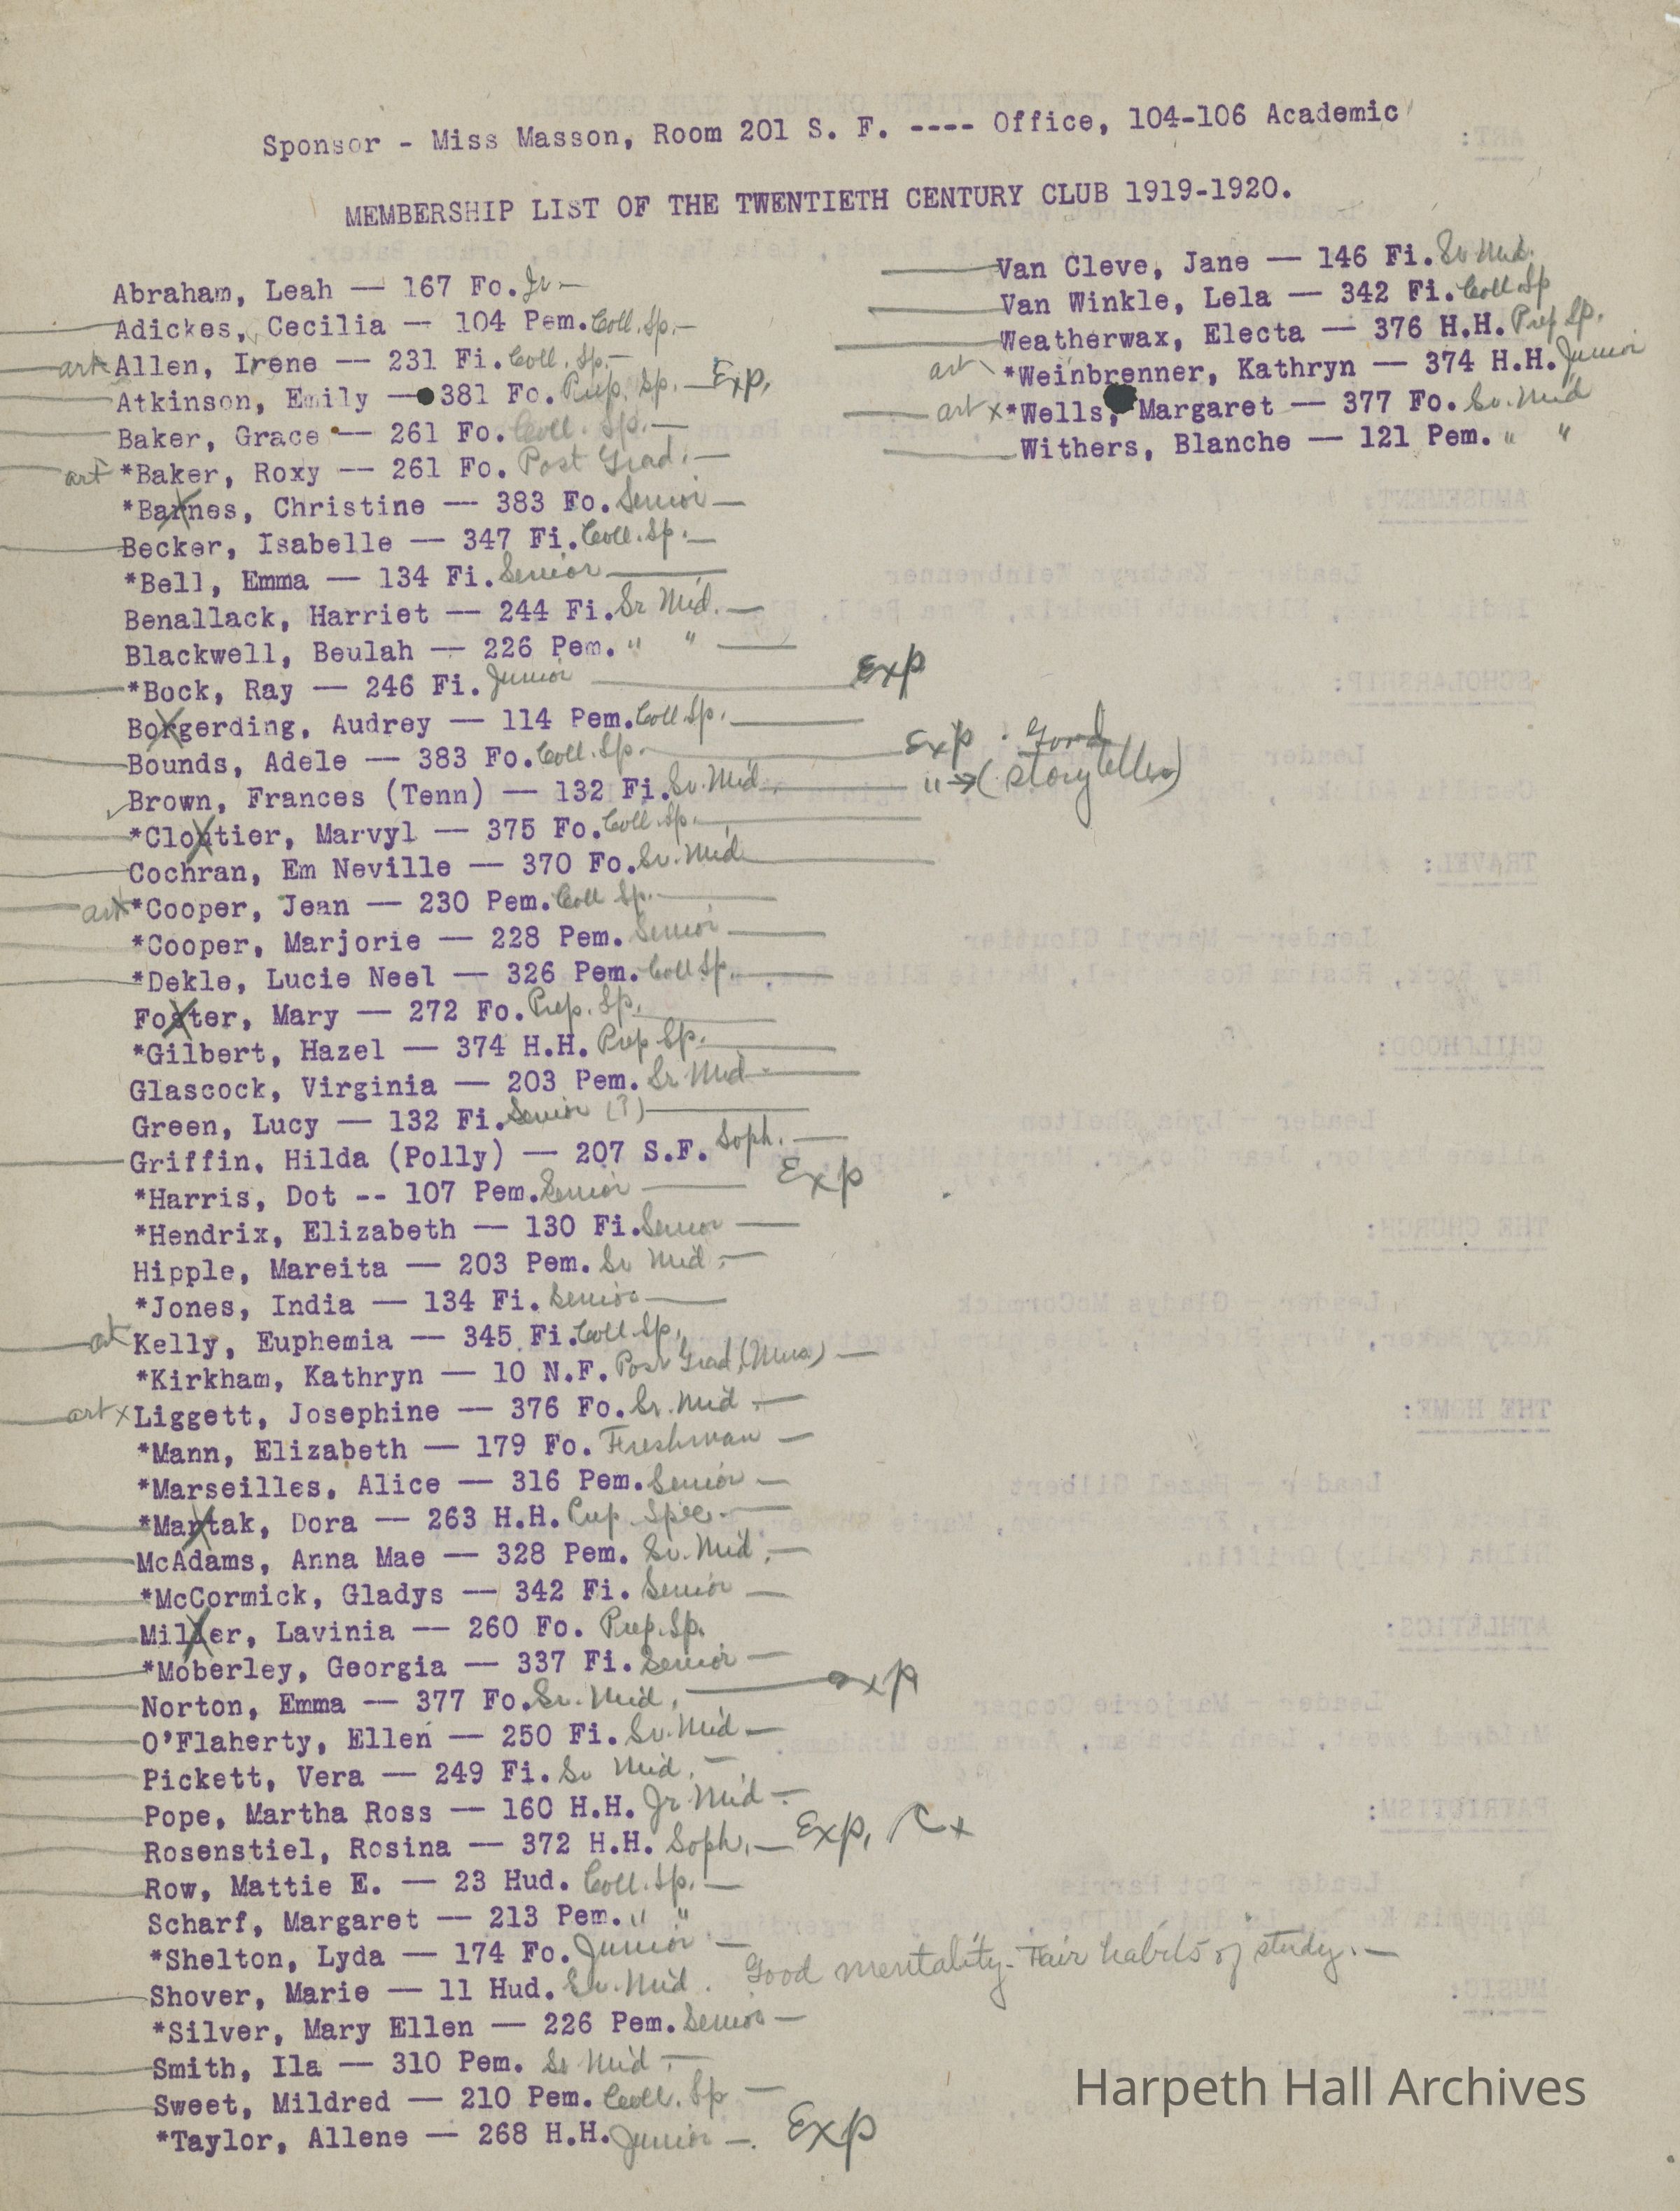 Sponsor - Miss Masson, Room 201 S. F. ---- Office, 104-106 Academic
MEMBERSHIP LIST OF THE TWENTIETH CENTURY CLUB 1919-1920.
Abraham, Leah -- 167 Fo. Jr -
Adickes, Cecilia -- 104 Pem. Coll. Sp. -
art Allen, Irene -- 231 Fi. Coll. Sp. -
Atkinson, Emily -- 381 Fo. Prep. Sp. - Exp.
Baker, Grace -- 261 Fo. Coll. Sp. -
art *Baker, Roxy -- 261 Fo. Post Grad. -
*Barnes, Christine -- 383 Fo. Senior -
Becker, Isabelle -- 347 Fi. Coll. Sp. -
*Bell, Emma -- 134 Fi. Senior
Benallack, Harriet -- 244 Fi. Sr Mid. -
Blackwell, Beulah -- 226 Pem. " "
*Bock, Ray -- 246 Fi. Junior Exp
Borgerding, Audrey -- 114 Pem. Coll Sp.
Bounds, Adele -- 383 Fo. Coll. Sp. Exp. Good
Brown, Frances (Tenn) -- 132 Fi. Sr. Mid. " → (storyteller)
*Cloutier, Marvyl -- 375 Fo. Coll. Sp.
Cochran, Em Neville -- 370 Fo. Sr. Mid
art x *Cooper, Jean -- 230 Pem. Coll Sp.
*Cooper, Marjorie -- 228 Pem. Senior
*Dekle, Lucie Neel -- 326 Pem. Coll Sp.
Foster, Mary -- 272 Fo. Prep. Sp.
*Gilbert, Hazel -- 374 H.H. Prep Sp.
Glascock, Virginia -- 203 Pem. Sr Mid
Green, Lucy -- 132 Fi. Senior (?)
Griffin. Hilda (Polly) -- 207 S.F. Soph. -
*Harris, Dot -- 107 Pem. Senior Exp
*Hendrix, Elizabeth -- 130 Fi. Senior -
Hipple, Mareita -- 203 Pem. Sr Mid. -
*Jones, India -- 134 Fi. Senior
art Kelly, Euphemia -- 345 Fi. Coll Sp.
*Kirkham, Kathryn -- 10 N.F. Post Grad (Mus.) -
art x Liggett, Josephine -- 376 Fo. Sr. Mid. -
*Mann, Elizabeth -- 179 Fo. Freshman -
*Marseilles, Alice -- 316 Pem. Senior -
*Martak, Dora -- 263 H.H. Prep. Spec. -
McAdams, Anna Mae -- 328 Pem. Sr. Mid. -
*McCormick, Gladys -- 342 Fi. Senior -
Miller, Lavinia -- 260 Fo. Prep. Sp.
*Moberley, Georgia -- 337 Fi. Senior -
Norton, Emma -- 377 Fo. Sr. Mid. exp
O'Flaherty, Ellen -- 250 Fi. Sr. Mid -
Pickett, Vera -- 249 Fi. Sr Mid. -
Pope, Martha Ross -- 160 H.H. Jr Mid -
Rosenstiel, Rosina -- 372 H.H. Soph. - Exp,
Row, Mattie E. -- 23 Hud. Coll. Sp. -
Scharf, Margaret -- 213 Pem. " "
*Shelton, Lyda -- 174 Fo. Junior -
Shover, Marie -- 11 Hud. Sr. Mid. Good mentality - Fair habits of study. -
*Silver, Mary Ellen -- 226 Pem. Senior -
Smith, Ila -- 310 Pem. Sr Mid. -
Sweet, Mildred -- 210 Pem. Coll. Sp -
*Taylor, Allene -- 268 H.H. Junior -. Exp
Van Cleve, Jane -- 146 Fi. Sr Mid.
Van Winkle, Lela -- 342 Fi. Coll Sp
Weatherwax, Electa -- 376 H.H. Prep Sp.
art *Weinbrenner, Kathryn -- 374 H.H. Junior
art x *Wells, Margaret -- 377 Fo. Sr. Mid
Withers, Blanche -- 121 Pem. " "
Harpeth Hall Archives